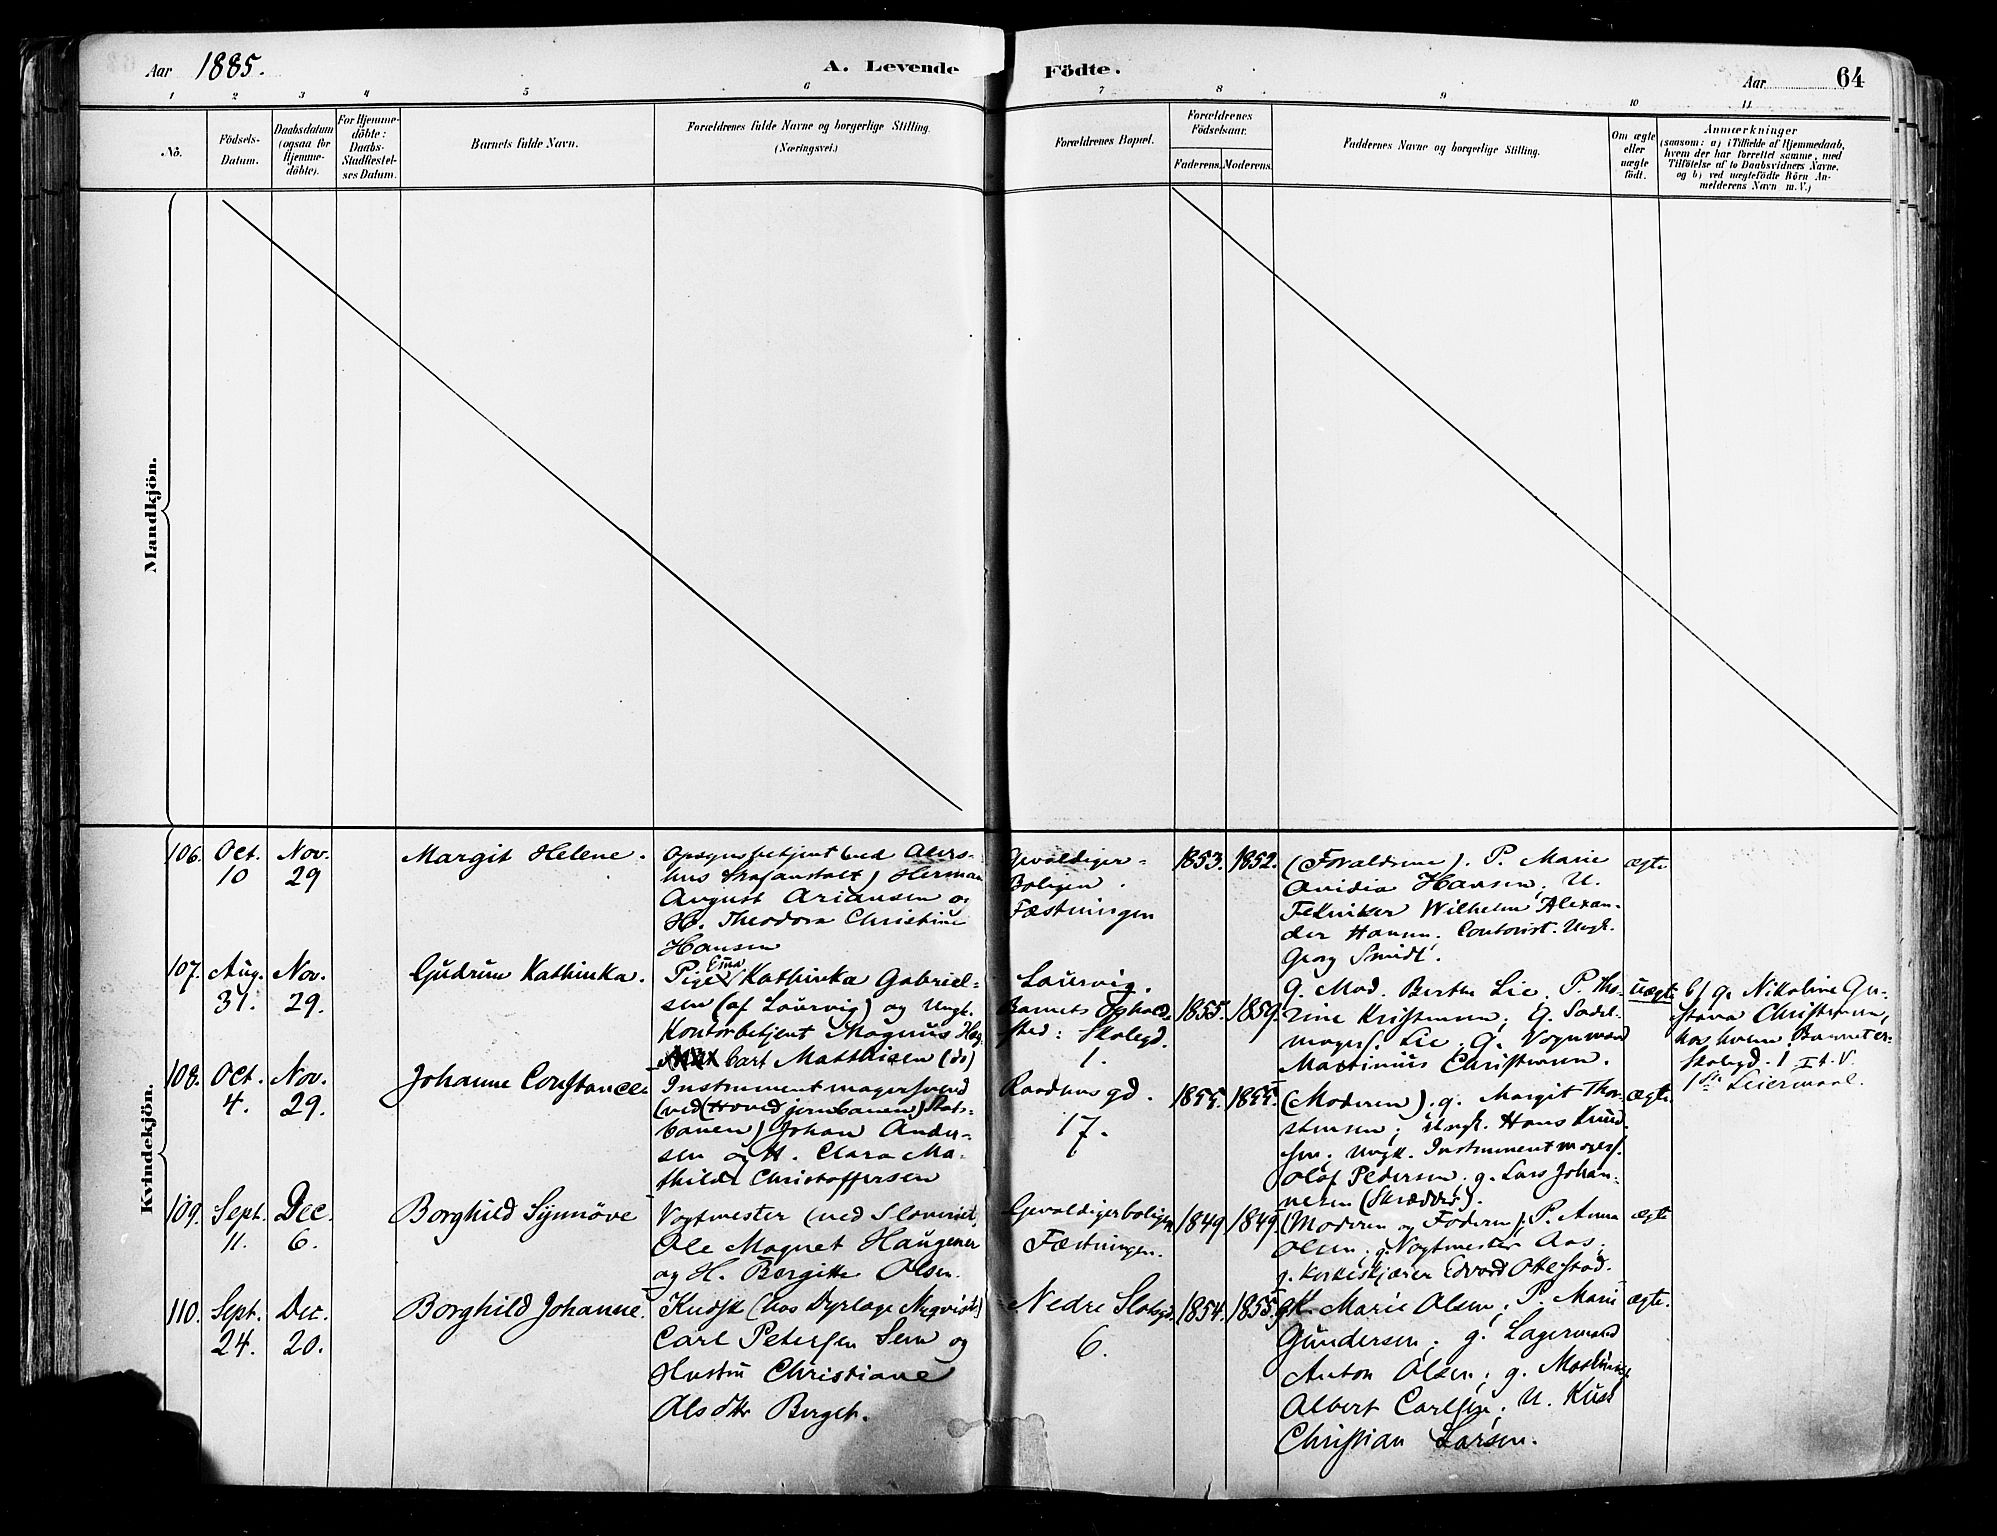 Aar 1885.
A. Levende Födte.
Aar 64
1 2 3 4 5 6 7 8 9 10 11
No.
Födsels-
Datum.
Daabsdatum
(ogsaa for
Hjemme-
döbte).
For Hjemme-
döbte:
Daabs-
Stadfæstel-
ses Datum.
Barnets fulde Navn.
Forældrenes fulde Navne og borgerlige Stilling.
(Næringsvei.)
Forældrenes Bopæl.
Forældrenes
Födselsaar.
Faderens.
Moderens.
Faddernes Navne og borgerlige Stilling.
Om ægte
eller
uægte
födt.
Anmærkninger
(saasom: a) i Tilfælde af Hjemmedaab,
hvem der har forrettet samme, med
Tilföielse af to Daabsvidners Navne,
og b) ved uægtefödte Börn An-
melderens Navn m. V.)
Mandkjön.
Kvindekjön.
106.
Oct.
10
Nov.
29
Margit Helene.
Opsynsbetjent (ved Akers-
hus Strafanstalt) Herman
August Ariansen og
H. Theodora Christine
Hansen
Gevaldiger-
Boligen.
Fæstningen
1853.
1852.
(Forældrene). P. Marie
Ovidia Hansen; U.
Tekniker Wilhelm Alexan-
der Hansen. Contorist. Ungk.
Georg Smidt.
ægte
107.
Aug.
31.
Nov.
29.
Gudrun Kathinka.
Pige Kathinka Gabriel-
sen (af Laurvig) og Ungk.
Kontorbetjent Magnus
bart Mathisen (ds)
Laurvig.
Barnets Opholds
sted: Skolegd.
1.
1855.
1859.
g. Mad. Berthe Lie. P. Tho-
rine Kristensen; G. Sadel-
magers. Lie. G. Vognmand
Martinius Christensen.
uægte
b/ g. Nikoline Gu-
stava Christensen,
hos hvem Barnet er.
Skolegd. 1 I t. V.
1ste Leiermaal.
108.
Oct.
4.
Nov.
29.
Johanne Constance
Instrumentmagersvend
(ved (Hovedjernbanen) Stats-
banen) Johan Ander-
sen og H. Clara Ma-
thilde Christoffersen
Raadhusgd.
17.
1855.
1855.
(Moderen). g. Margit Thor-
stensen; Ungk. Hans Knud-
sen; Ungk. Instrumentmagers.
Olaf Pedersen. g. Lars Johan-
nesen (Skrædder).
ægte
109.
Sept.
11.
Dec.
6.
Borghild Synnöve
Vogtmester (ved Slaveriet)
Ole Magnet Haugener
og H. Bergitte Olsen.
Gevaldigerboligen
Fæstningen.
1849
1849.
(Moderen og Faderen); P. Anna
Olsen; g. Vogtmester Aas;
g. Korkeskjærer Edvard Ottestad.
ægte
110.
Sept.
24.
Dec.
20.
Borghild Johanne
Kudsk (hos Dyrlæge Nyqvist)
Carl Petersen Sem og
Hustru Christiane
Olsdtr Berget.
Nedre Slotsgd.
6.
1854.
1855.
gK. Marie Olsen; P. Marie
Gundersen; g. Lagermand
Anton Olsen; g. Maskinist
Albert Carlsen; U. Kusk
Christian Larsen.
ægte.